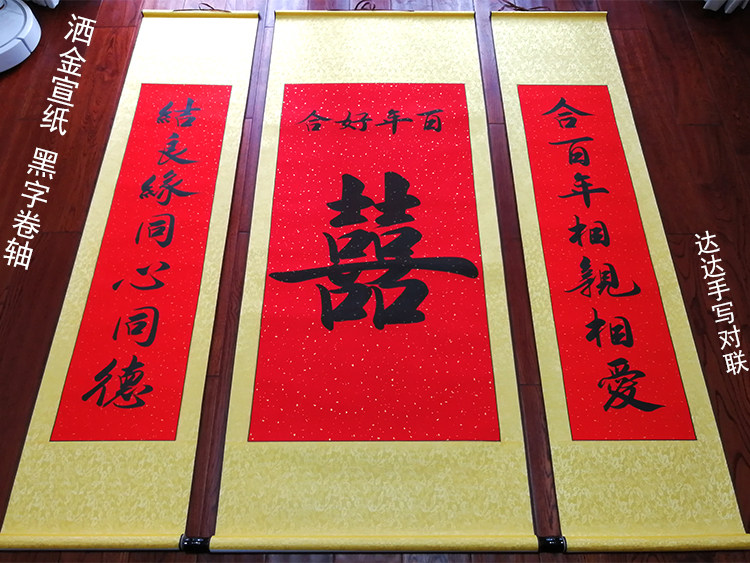 洒金宣纸 黑字卷轴
合百年相親相愛
百年好合
囍
結良緣同心同德
达达手写对联